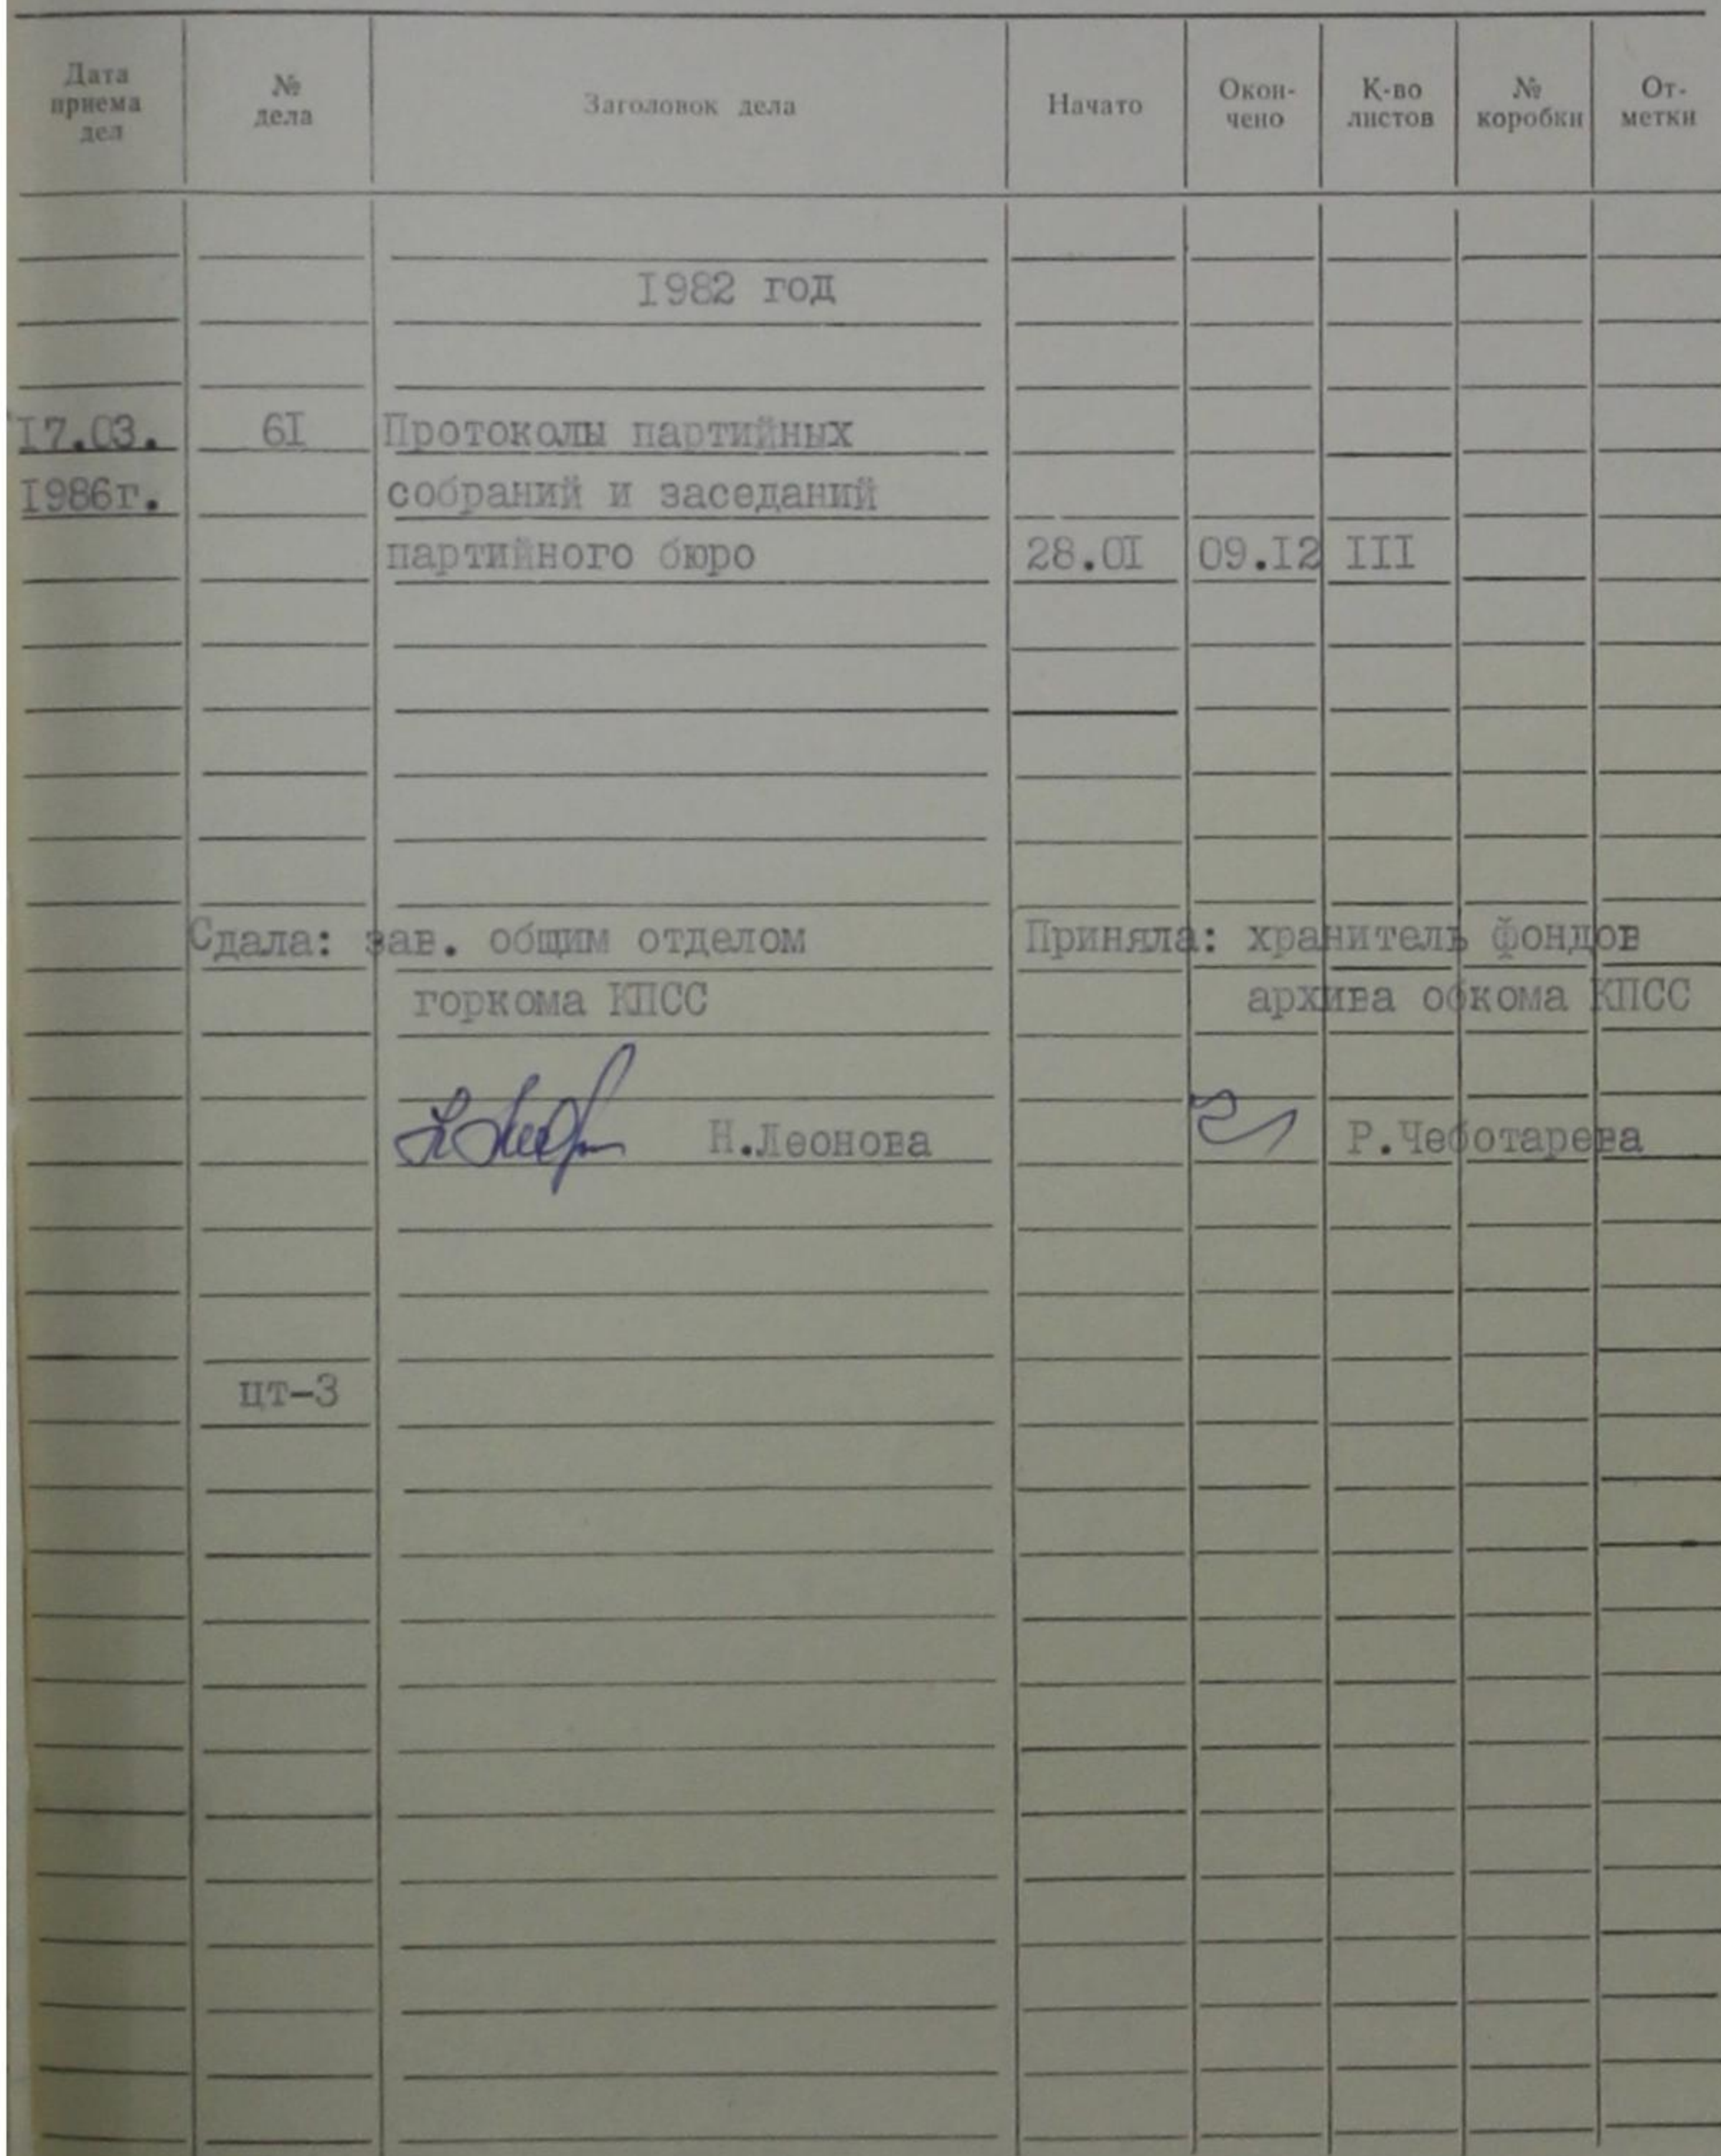 Дата приема дел № дела Заголовок дела Начато Окончено К-во листов № коробки Отметки
I982 год
I7.03. 6I Протоколы партийных
I986г. собраний и заседаний
партийного бюро 28.0I 09.I2 III
Сдала: зав. общим отделом Приняла: хранитель фондов
горкома КПСС архива обкома КПСС
Н.Леонова Р.Чеботарева
цт-3